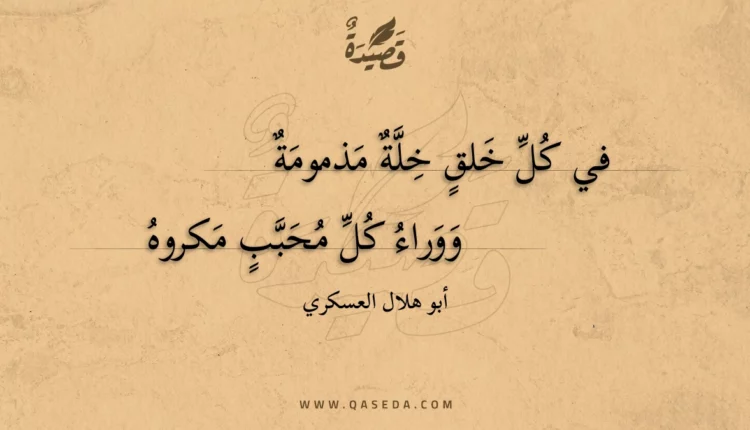 قَصِيْدَةٌ
في كُلِّ خَلقٍ خِلَّةٌ مَذمومَةٌ
وَوَراءُ كُلِّ مُحَبَّبٍ مَكروهُ
أبو هلال العسكري
WWW.QASEDA.COM